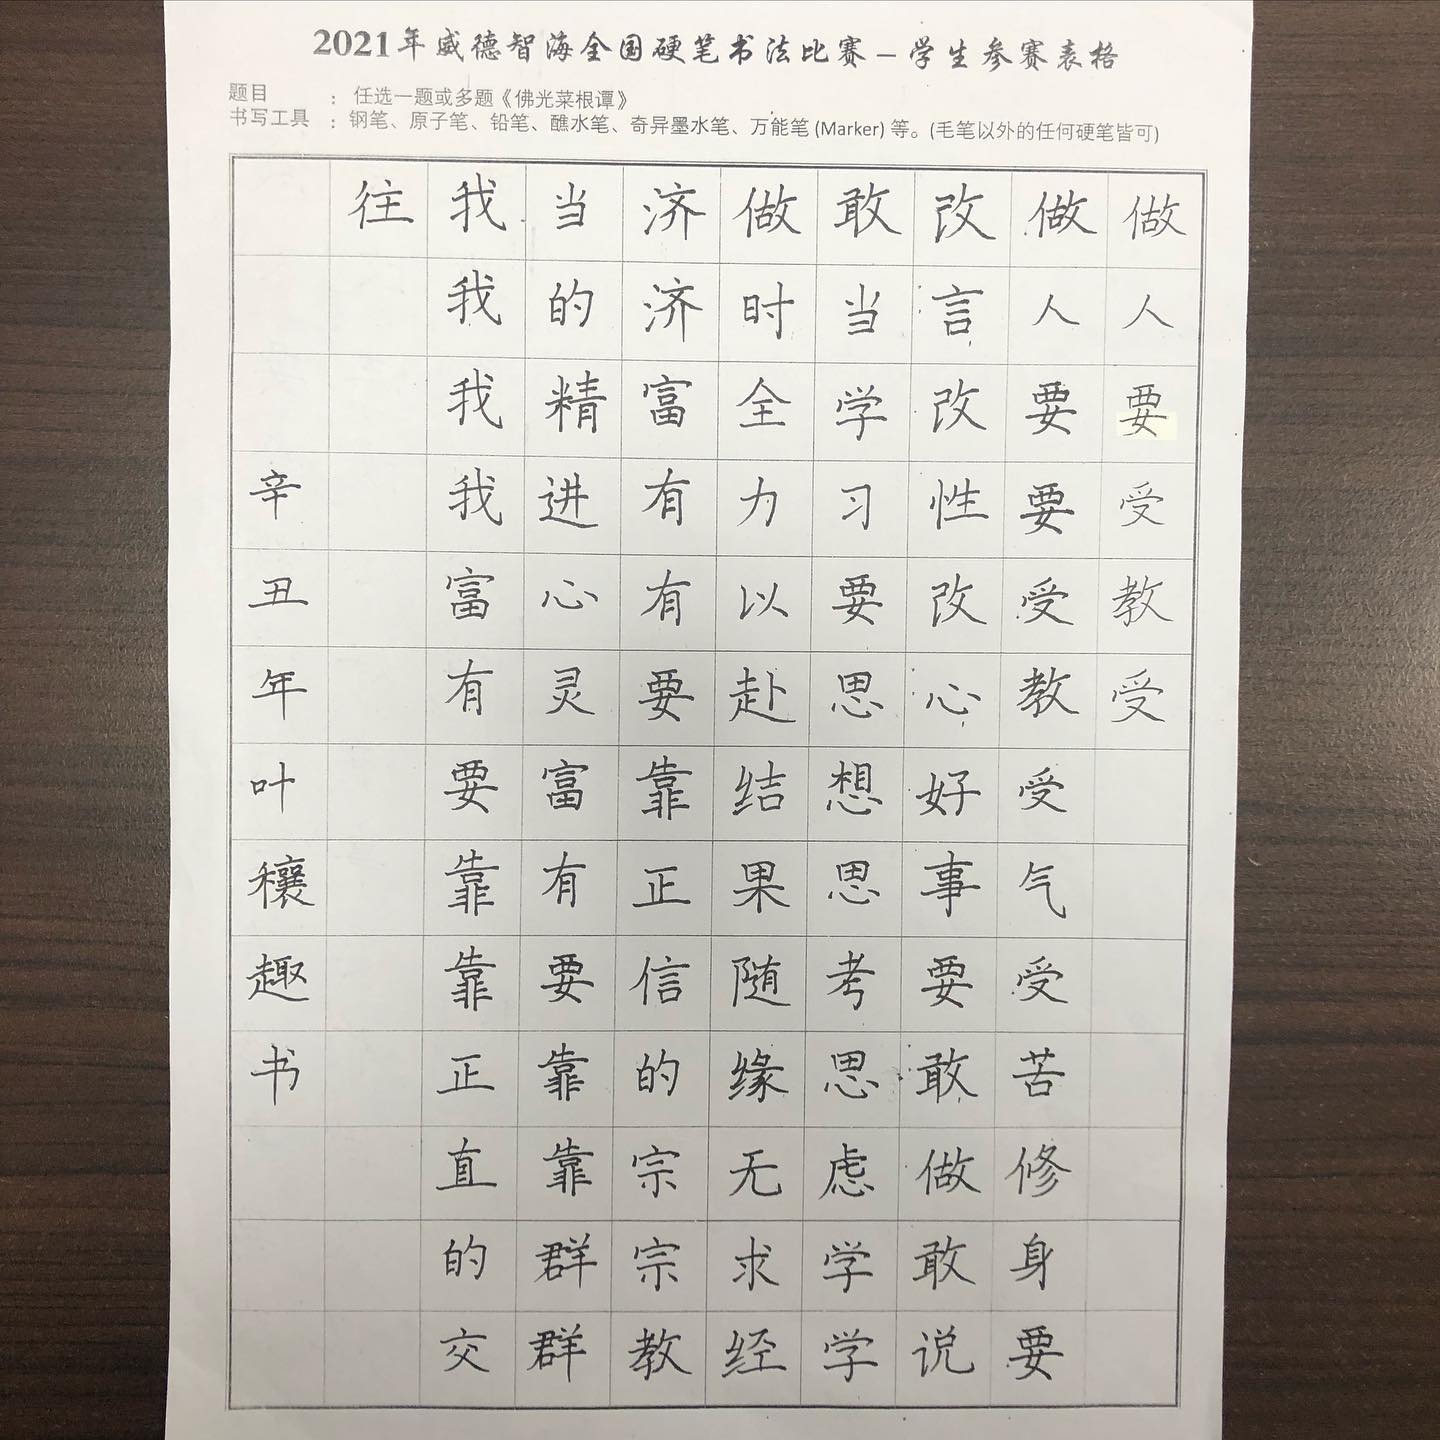 2021年威德智海全国硬笔书法比赛－学生参赛表格
题目 ： 任选一题或多题《佛光菜根谭》
书写工具 ：钢笔、原子笔、铅笔、醮水笔、奇异墨水笔、万能笔 (Marker) 等。(毛笔以外的任何硬笔皆可)
做人要受教受
做人要要受教受气受苦修身要
改言改性改心好事要敢做敢说
敢当学习要思想思考思虑学学
做时全力以赴结果随缘无求经
济济富有有要靠正信的宗宗教
当的精进心灵富有要靠靠群群
我我我我富有要靠靠正直的交
往
辛丑年叶穰趣书